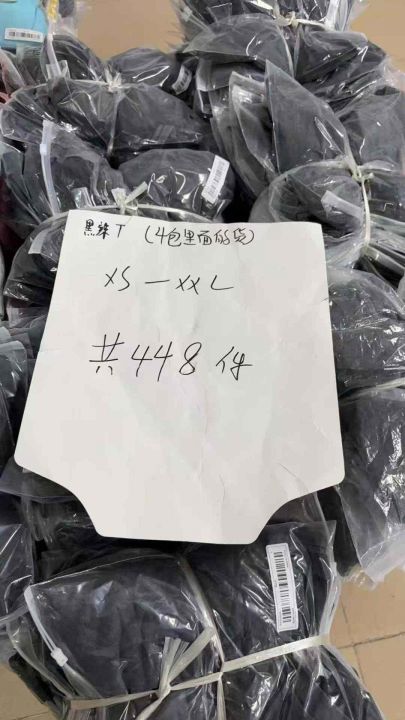 黑辫T (4包里面的货)
XS — XXL
共448件